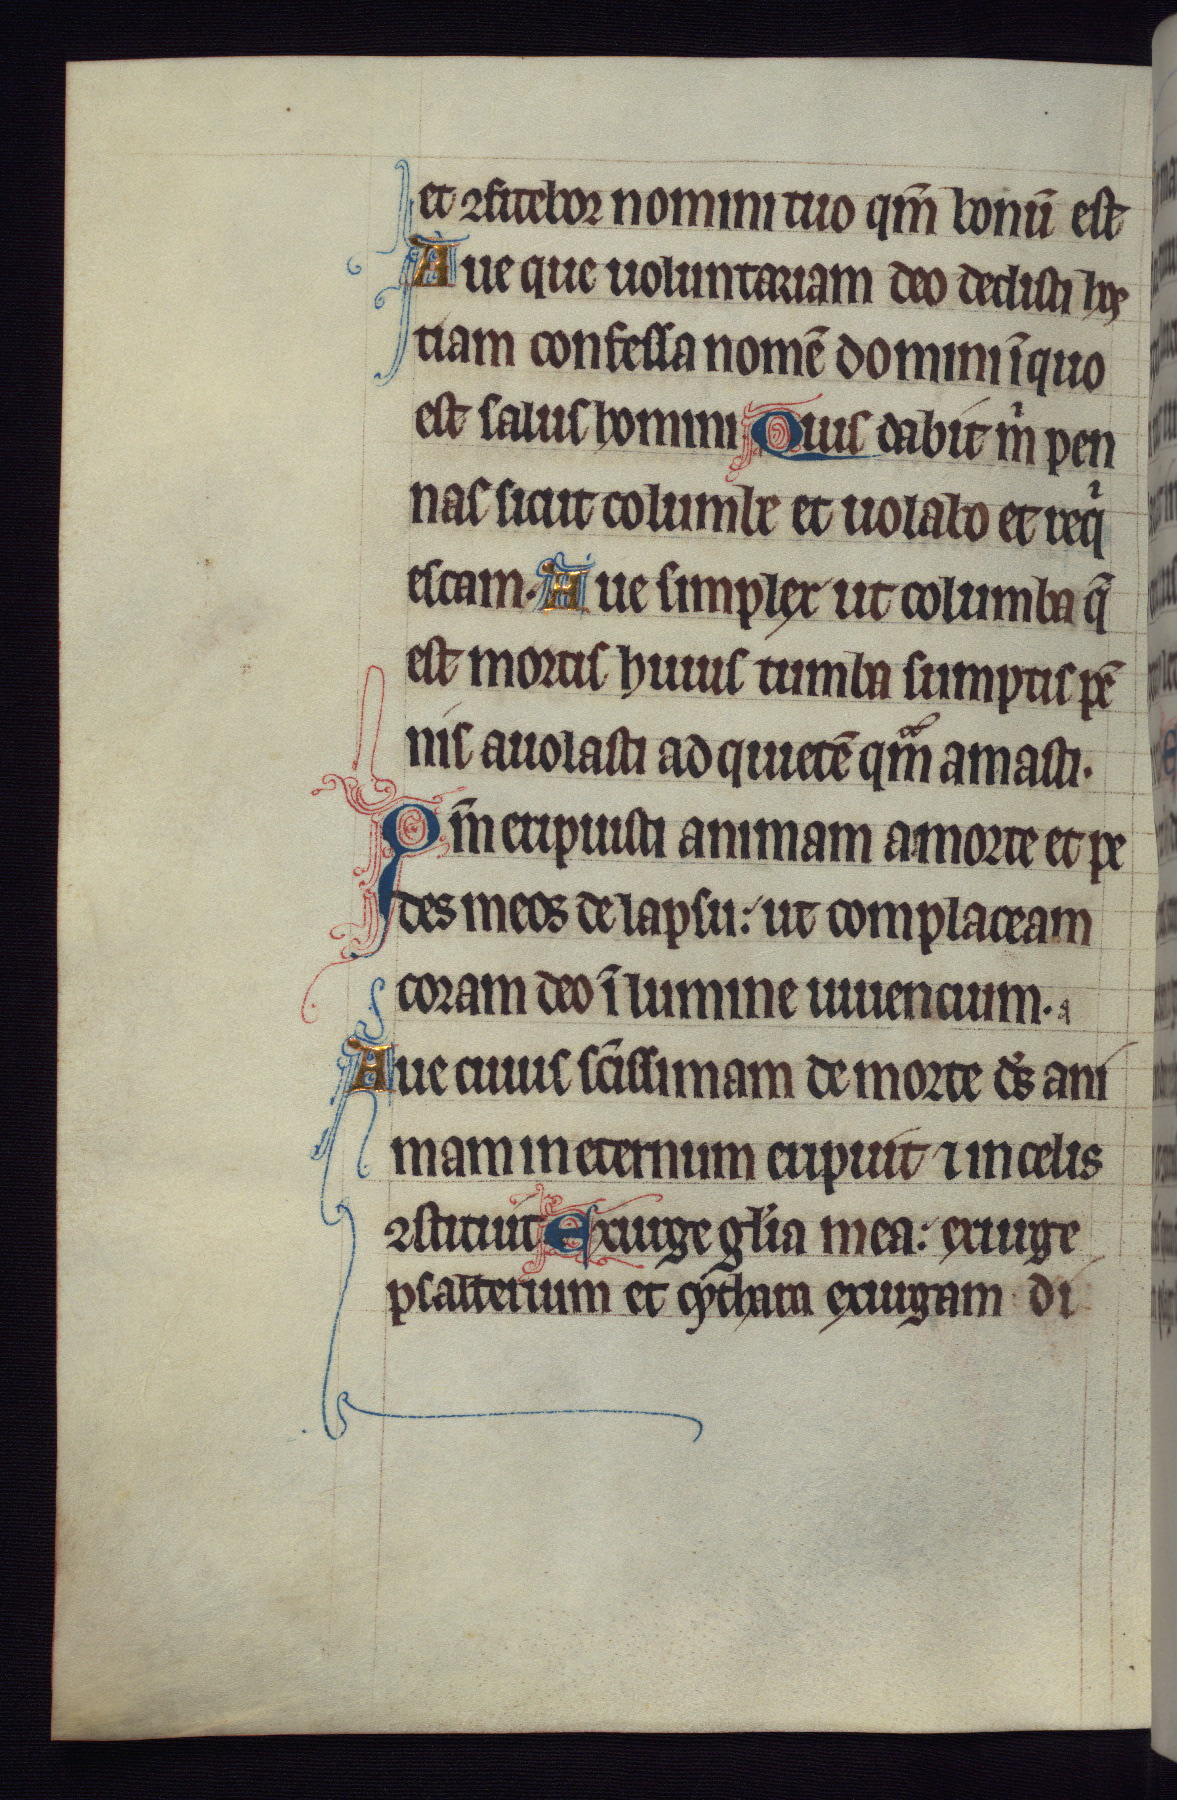 et ꝯfitebor nomini tuo qm̄ bonū est
Aue que uoluntariam deo dedisti hos
tiam confessa nomē domini ī quo
est salus homini Quis dabit m̍ pen
nas sicut columbe et uolabo et req̍
escam. Aue simplex ut columba q̄
est mortis huius tumba sumptis pē
nis auolasti ad quietē qᵃm amasti.
Qm̄ eripuisti animam a morte et pe
des meos de lapsu: ut complaceam
coram deo ī lumine uiuencium. a
Aue cuius sc̄issimam de morte ds̄ ani
mam in eternum eripuit ⁊ in celis
ꝯstituit Exurge gl̄ia mea: exurge
psalterium et cythara exurgam di